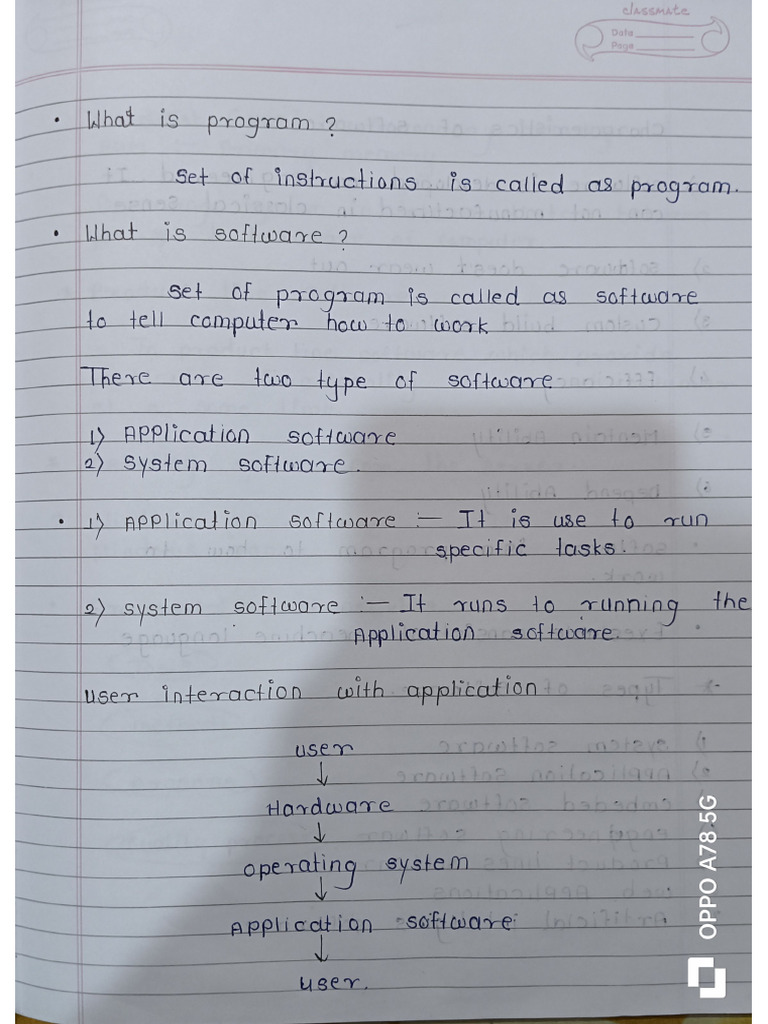 classmate
Date
Page
• What is program?
set of instructions is called as program.
• What is software?
set of program is called as software
to tell computer how to work
There are two type of software
1) Application software
2) System software.
• 1) Application software :- It is use to run
specific tasks.
2) System software :- It runs to running the
Application software.
User interaction with application
user
↓
Hardware
↓
operating system
↓
Application software
↓
user.
OPPO A78 5G